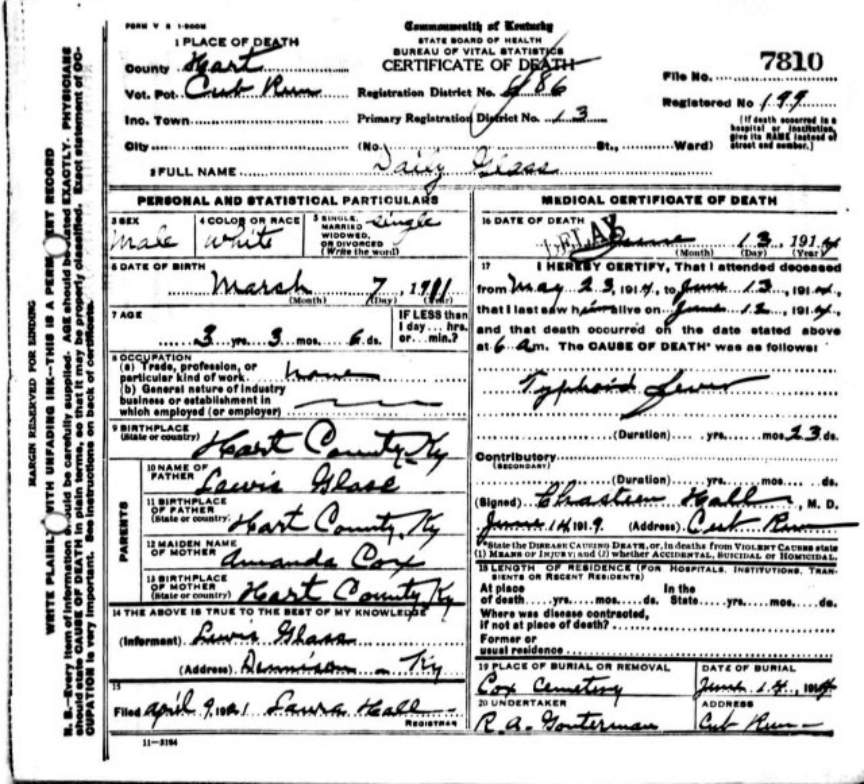 FORM V S 1-500M
Commonwealth of Kentucky
STATE BOARD OF HEALTH
BUREAU OF VITAL STATISTICS
CERTIFICATE OF DEATH
1 PLACE OF DEATH
County Hart
Vot. Pct. Cub Run
Inc. Town
City (No. St., Ward)
Registration District No. 486
Primary Registration District No. 13
File No. 7810
Registered No 199
(If death occurred in a hospital or institution, give its NAME instead of street and number.)
2 FULL NAME Daily Glass
PERSONAL AND STATISTICAL PARTICULARS
3 SEX Male
4 COLOR OR RACE White
5 SINGLE, MARRIED WIDOWED, OR DIVORCED (Write the word) Single
6 DATE OF BIRTH
March 7, 1911
(Month) (Day) (Year)
7 AGE
3 yrs. 3 mos. 6 ds.
IF LESS than 1 day... hrs. or... min.?
8 OCCUPATION
(a) Trade, profession, or particular kind of work. none
(b) General nature of industry business or establishment in which employed (or employer)
9 BIRTHPLACE (State or country) Hart County Ky
PARENTS
10 NAME OF FATHER Lewis Glass
11 BIRTHPLACE OF FATHER (State or country) Hart County, Ky
12 MAIDEN NAME OF MOTHER Amanda Cox
13 BIRTHPLACE OF MOTHER (State or country) Hart County Ky
14 THE ABOVE IS TRUE TO THE BEST OF MY KNOWLEDGE
(Informant) Lewis Glass
(Address) Dennison - Ky
15
Filed April 9, 1921 Laura Hall
REGISTRAR
11-3184
MEDICAL CERTIFICATE OF DEATH
16 DATE OF DEATH
DELAY
June 13 1914
(Month) (Day) (Year)
17 I HEREBY CERTIFY, That I attended deceased
from May 23, 1914, to June 13, 1914,
that I last saw him alive on June 12, 1914,
and that death occurred on the date stated above
at 6 am. The CAUSE OF DEATH* was as follows:
Typhoid Fever
(Duration) yrs. mos. 23 ds.
Contributory
(SECONDARY)
(Duration) yrs. mos. ds.
(Signed) Chasteen Hall, M. D.
June 14 191 (Address) Cub Run
*State the DISEASE CAUSING DEATH, or, in deaths from VIOLENT CAUSES state
(1) MEANS OF INJURY; and (2) whether ACCIDENTAL, SUICIDAL or HOMICIDAL.
18 LENGTH OF RESIDENCE (FOR HOSPITALS, INSTITUTIONS, TRANSIENTS OR RECENT RESIDENTS)
At place of death yrs. mos. ds. In the State yrs. mos. ds.
Where was disease contracted, if not at place of death?
Former or usual residence
19 PLACE OF BURIAL OR REMOVAL
Cox Cemetery
DATE OF BURIAL
June 14, 1914
20 UNDERTAKER
R. A. Gouterman
ADDRESS
Cub Run
MARGIN RESERVED FOR BINDING
WRITE PLAINLY WITH UNFADING INK—THIS IS A PERMANENT RECORD
N. B.—Every item of information should be carefully supplied. AGE should be stated EXACTLY. PHYSICIANS
should state CAUSE OF DEATH in plain terms, so that it may be properly classified. Exact statement of OC-
CUPATION is very important. See instructions on back of certificate.